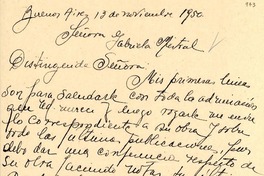 Buenos Aires, 13 de noviembre 1950.
Señora Gabriela Mistral
Distinguida Señora:
Mis primeras líneas
son para saludarla con toda la admiración
que Ud. merece y luego rogarle me envíe
lo correspondiente a su obra y sobre
todo las últimas publicaciones, pues
debo dar una conferencia respecto de
su obra haciendo notar su